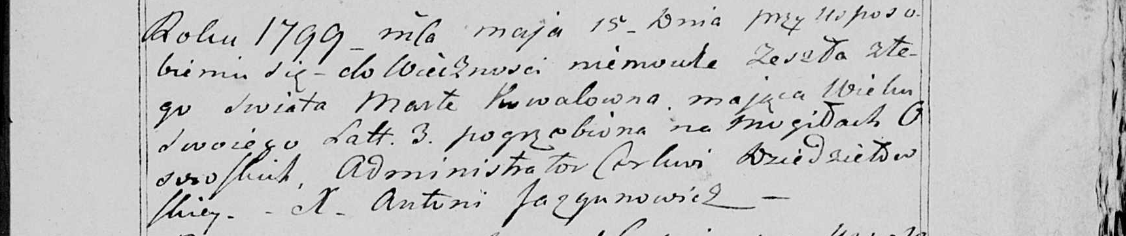 Roku 1799 – mca maja 15 – Dnia przy Usposo-
bieniu się – do Wiecznosci niemowle Zeszła z te-
go swiata Marta Kowalowna, mająca Wieku
Swoiego Latt. 3. pogrzebiona na Mogiłach O
sowskich, Administrator Cerkwi Dziedziełow
skiey. – X. Antoni Jazgunowicz –